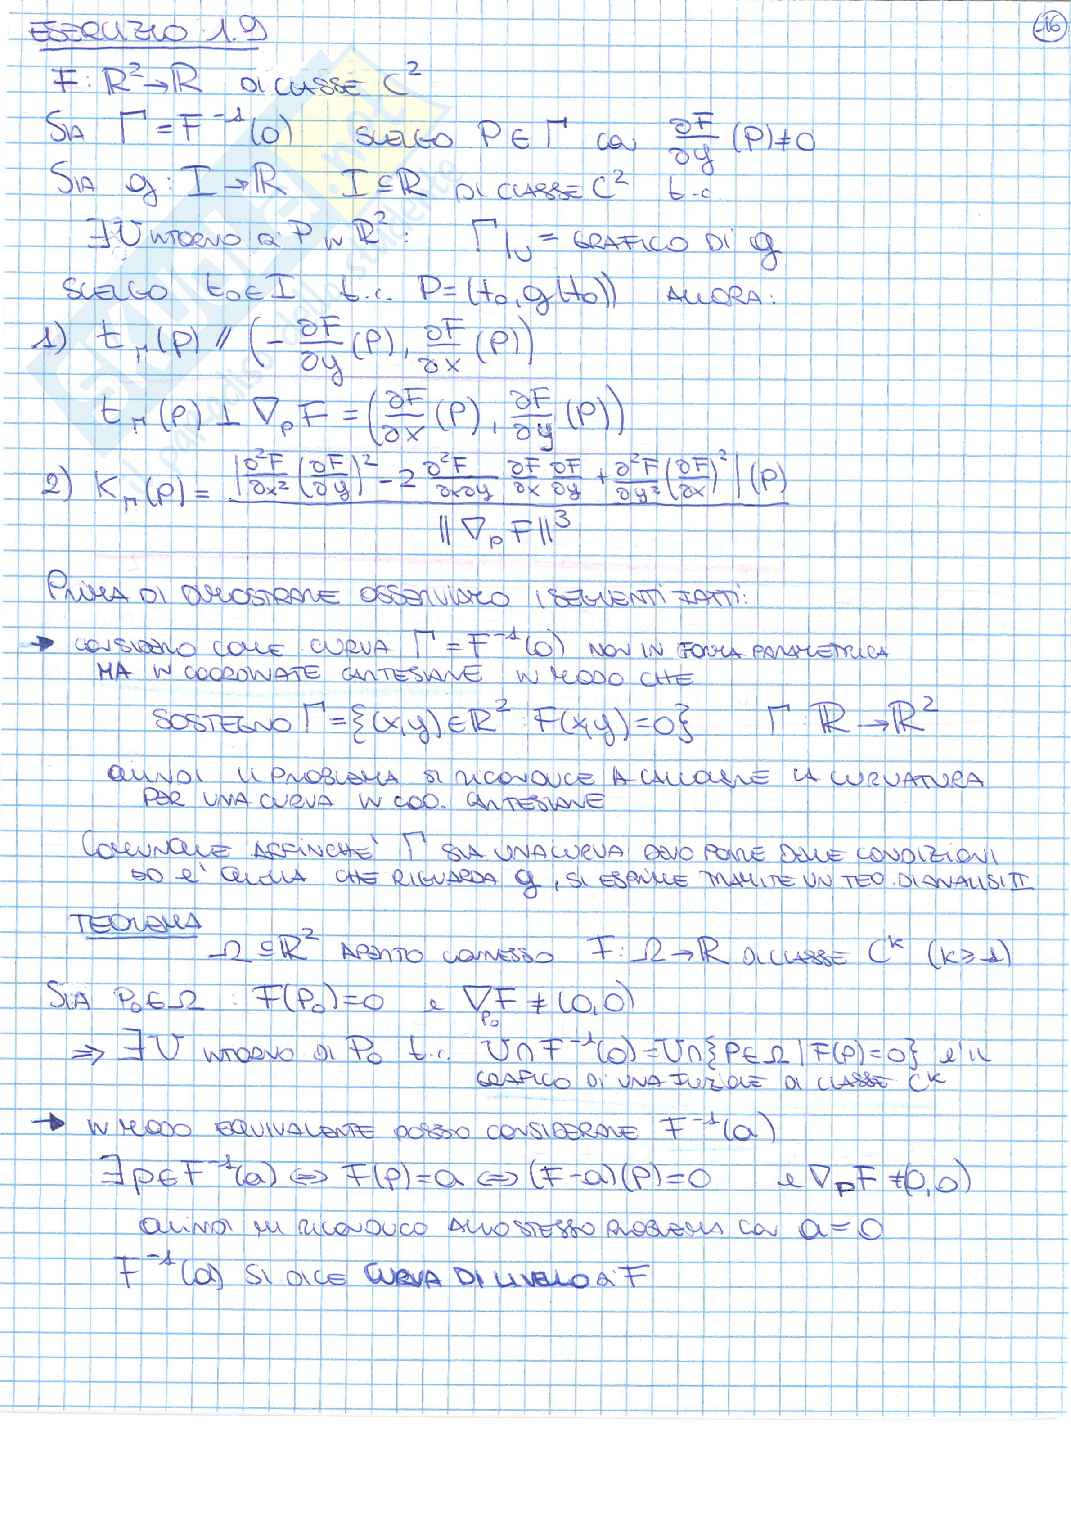 16
ESERCIZIO 1.9
F: ℝ² → ℝ DI CLASSE C²
SIA Γ = F⁻¹(0) SCELGO P ∈ Γ CON ∂F/∂y (P) ≠ 0
SIA g: I → ℝ I ⊆ ℝ DI CLASSE C² t.c.
∃ U INTORNO DI P IN ℝ²: Γ|_U = GRAFICO DI g
SCELGO t₀ ∈ I t.c. P = (t₀, g(t₀)) ALLORA:
1) t_Γ(P) // (-∂F/∂y (P), ∂F/∂x (P))
t_Γ(P) ⊥ ∇_P F = (∂F/∂x (P), ∂F/∂y (P))
2) K_Γ(P) = |∂²F/∂x² (∂F/∂y)² - 2 ∂²F/∂x∂y ∂F/∂x ∂F/∂y + ∂²F/∂y² (∂F/∂x)²| (P) / ‖∇_P F‖³
PRIMA DI DIMOSTRARE OSSERVIAMO I SEGUENTI FATTI:
→ CONSIDERO COME CURVA Γ = F⁻¹(0) NON IN FORMA PARAMETRICA
MA IN COORDINATE CARTESIANE IN MODO CHE
SOSTEGNO Γ = {(x,y) ∈ ℝ² : F(x,y) = 0} Γ: ℝ → ℝ²
QUINDI IL PROBLEMA SI RICONDUCE A CALCOLARE LA CURVATURA
PER UNA CURVA IN COO. CARTESIANE
COMUNQUE AFFINCHÉ Γ SIA UNA CURVA DEVO PORRE DELLE CONDIZIONI
CHE RIGUARDA g, SI ESPRIME TRAMITE UN TEO. DI ANALISI II
TEOREMA
Ω ⊆ ℝ² APERTO CONNESSO F: Ω → ℝ DI CLASSE Cᵏ (k ≥ 1)
SIA P₀ ∈ Ω : F(P₀) = 0 e ∇_P₀ F ≠ (0,0)
⇒ ∃ U INTORNO DI P₀ t.c. U ∩ F⁻¹(0) = U ∩ {P ∈ Ω | F(P) = 0} è il
GRAFICO DI UNA FUNZIONE DI CLASSE Cᵏ
→ IN MODO EQUIVALENTE POSSO CONSIDERARE F⁻¹(a)
∃ p ∈ F⁻¹(a) ⇔ F(p) = a ⇔ (F-a)(p) = 0 e ∇_P F ≠ (0,0)
QUINDI MI RICONDUCO ALLO STESSO PROBLEMA CON a = 0
F⁻¹(a) SI DICE CURVA DI LIVELLO DI F